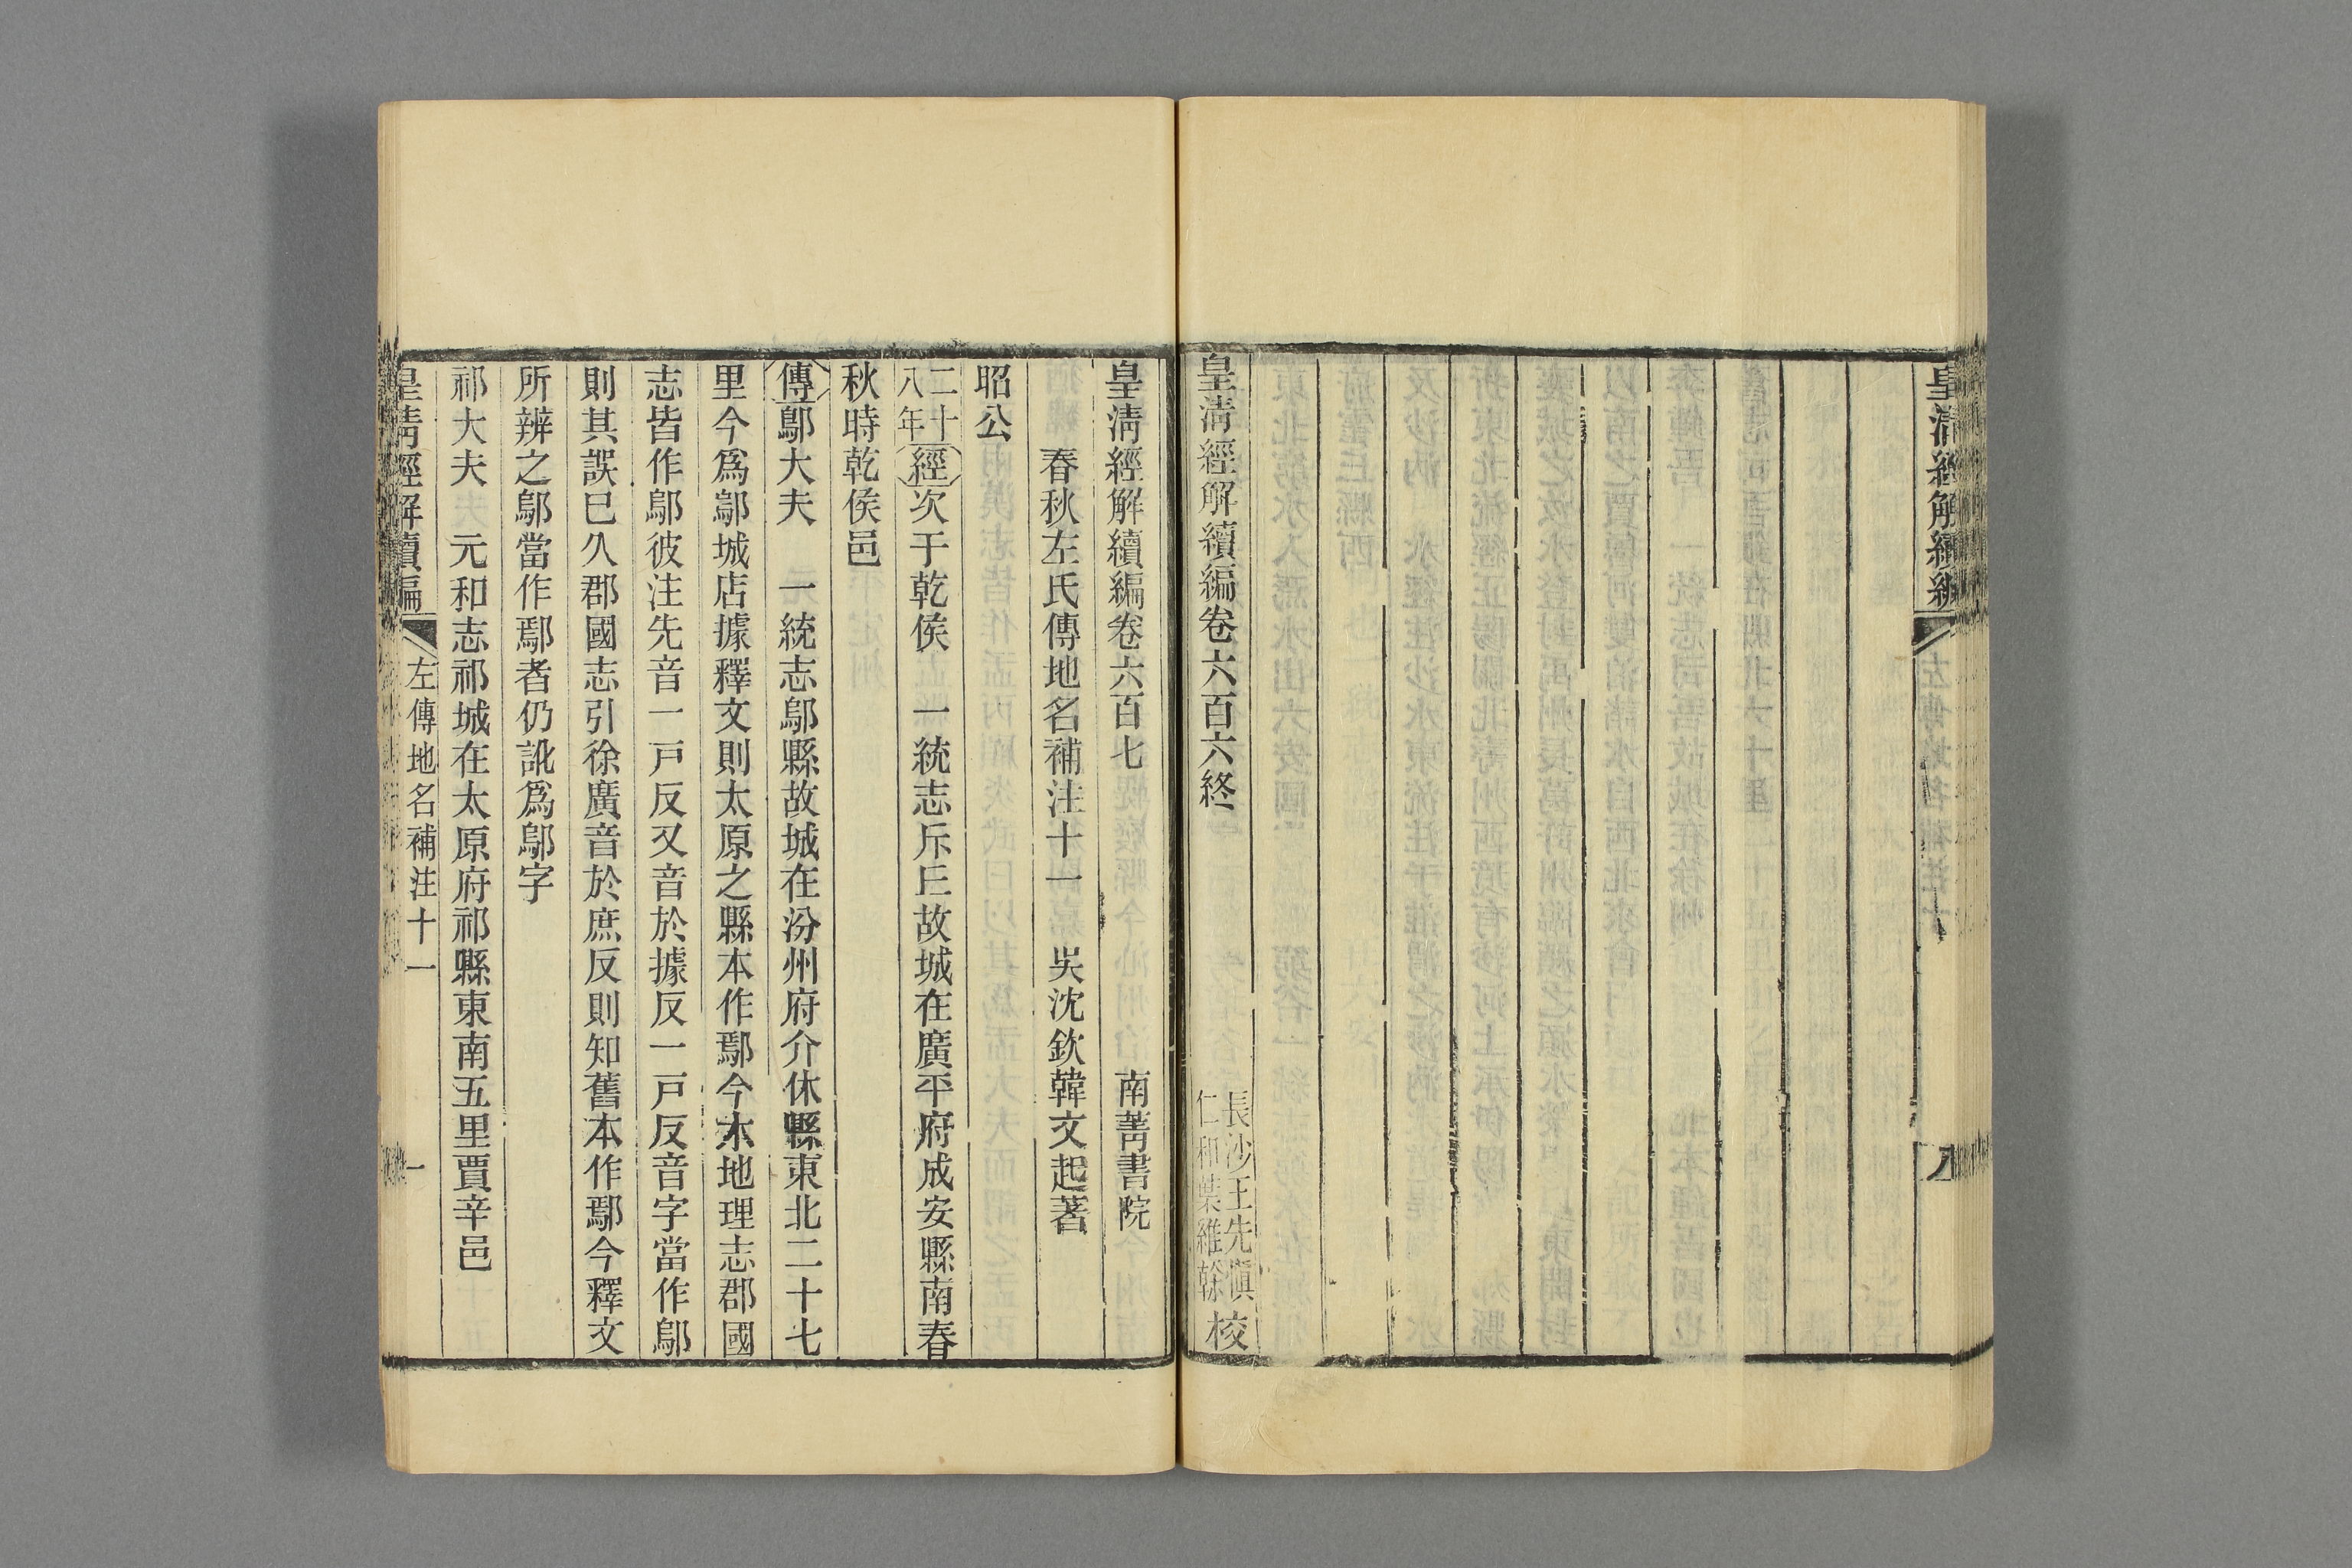 皇清經解續編
八
皇清經解續編卷六百六終
長沙王先愼
仁和葉維榦
校
皇清經解續編卷六百七
南菁書院
春秋左氏傳地名補注十一
吳沈欽韓文起著
昭公
二十八年經次于乾侯 一統志斥丘故城在廣平府成安縣南春
秋時乾侯邑
傳鄔大夫 一統志鄔縣故城在汾州府介休縣東北二十七
里今爲鄔城店據釋文則太原之縣本作鄢今本地理志郡國
志皆作鄔彼注先音一戸反又音於據反一戸反音字當作鄔
則其誤巳久郡國志引徐廣音於庶反則知舊本作鄢今釋文
所辨之鄔當作鄢者仍訛爲鄔字
祁大夫 元和志祁城在太原府祁縣東南五里賈辛邑
皇清經解續編
左傳地名補注十一
一